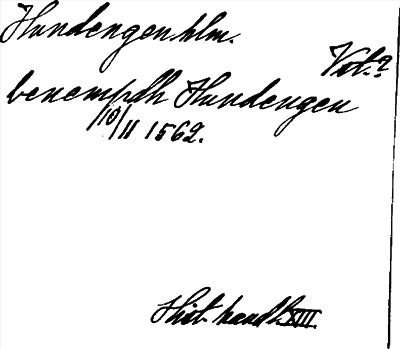 Hundengenhlm.
Vst.?
benempdh Hundengen
10/11 1562.
Hist. handl. XIII.